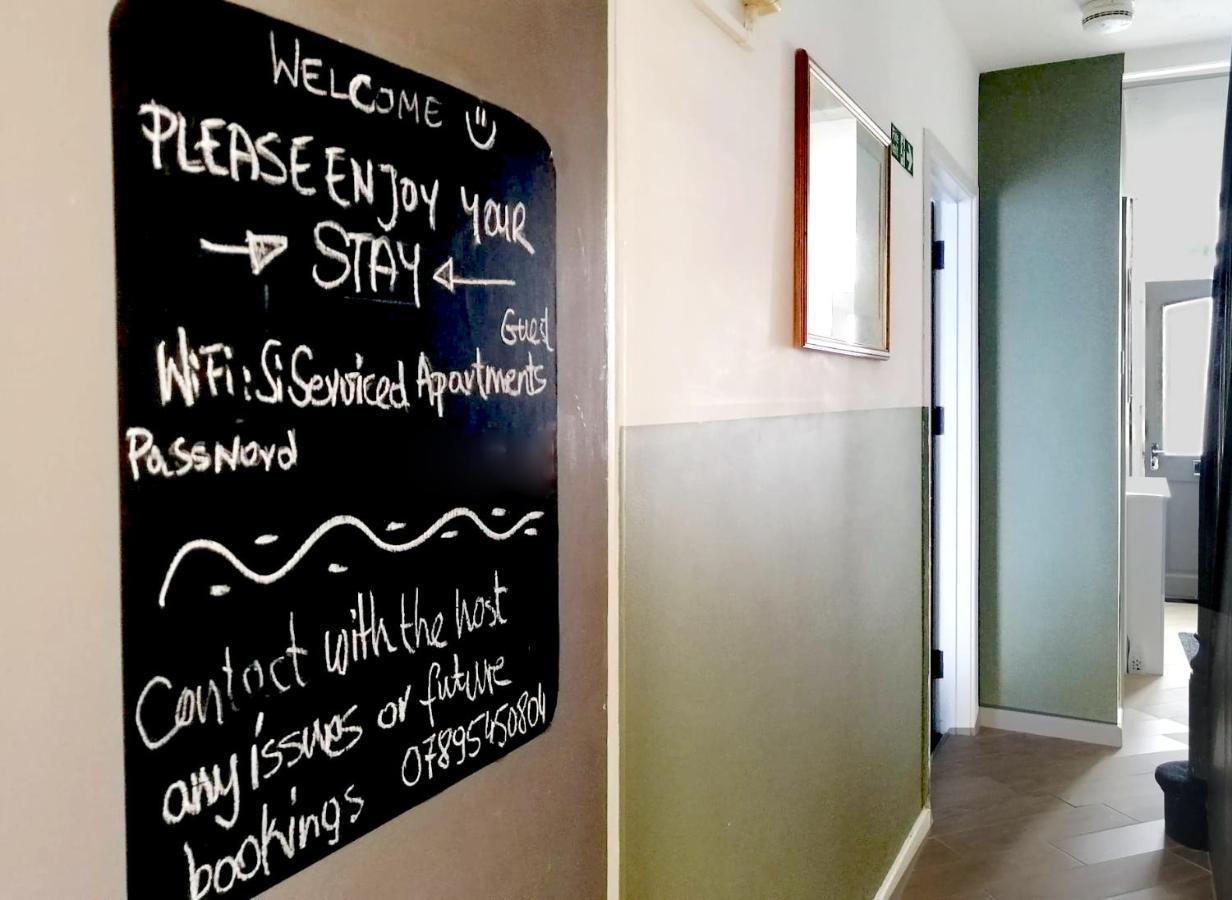 WELCOME
PLEASE ENJOY YOUR
STAY
Guest
WiFi: Si Serviced Apartments
Password
Contact with the host
any issues or future
bookings 07895450804